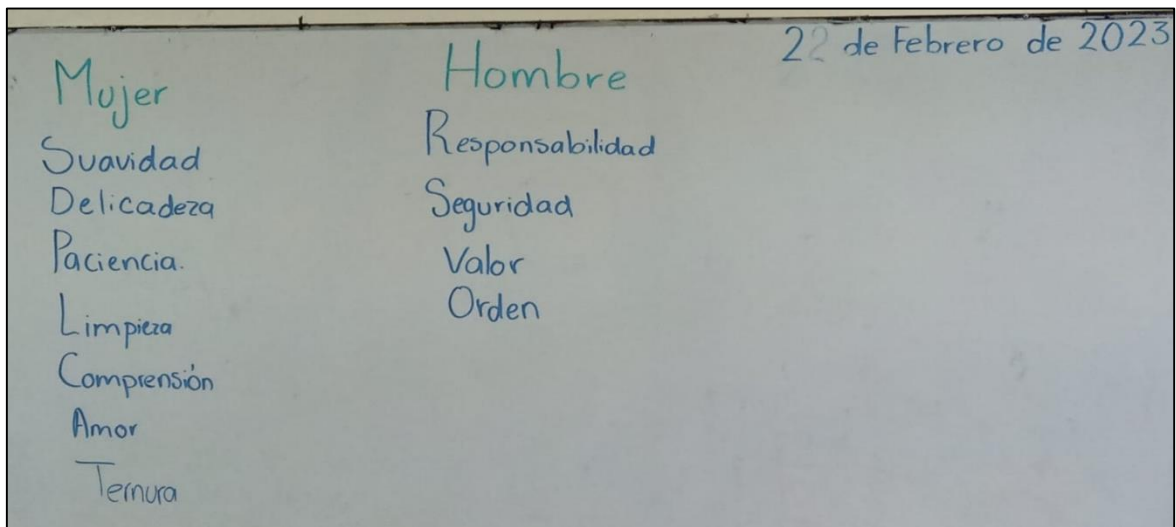 22 de Febrero de 2023
Mujer
Suavidad
Delicadeza
Paciencia.
Limpieza
Comprensión
Amor
Ternura
Hombre
Responsabilidad
Seguridad
Valor
Orden